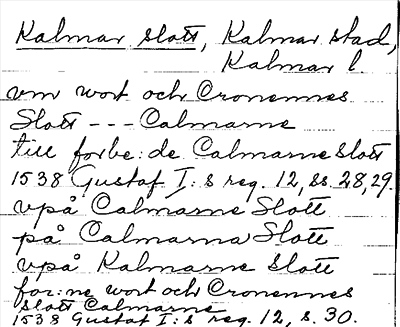 Kalmar slott, Kalmar stad,
Kalmar l.
vm wort och Cronennes
Slott --- Calmarne
till forbe:de Calmarne slott
1538 Gustaf I:s reg. 12, ss. 28, 29.
vpå Calmarne Slott
på Calmarna Slott
vpå Kalmarne Slott
for:ne wort och Cronennes
slott Calmarne
1538 Gustaf I:s reg. 12, s. 30.